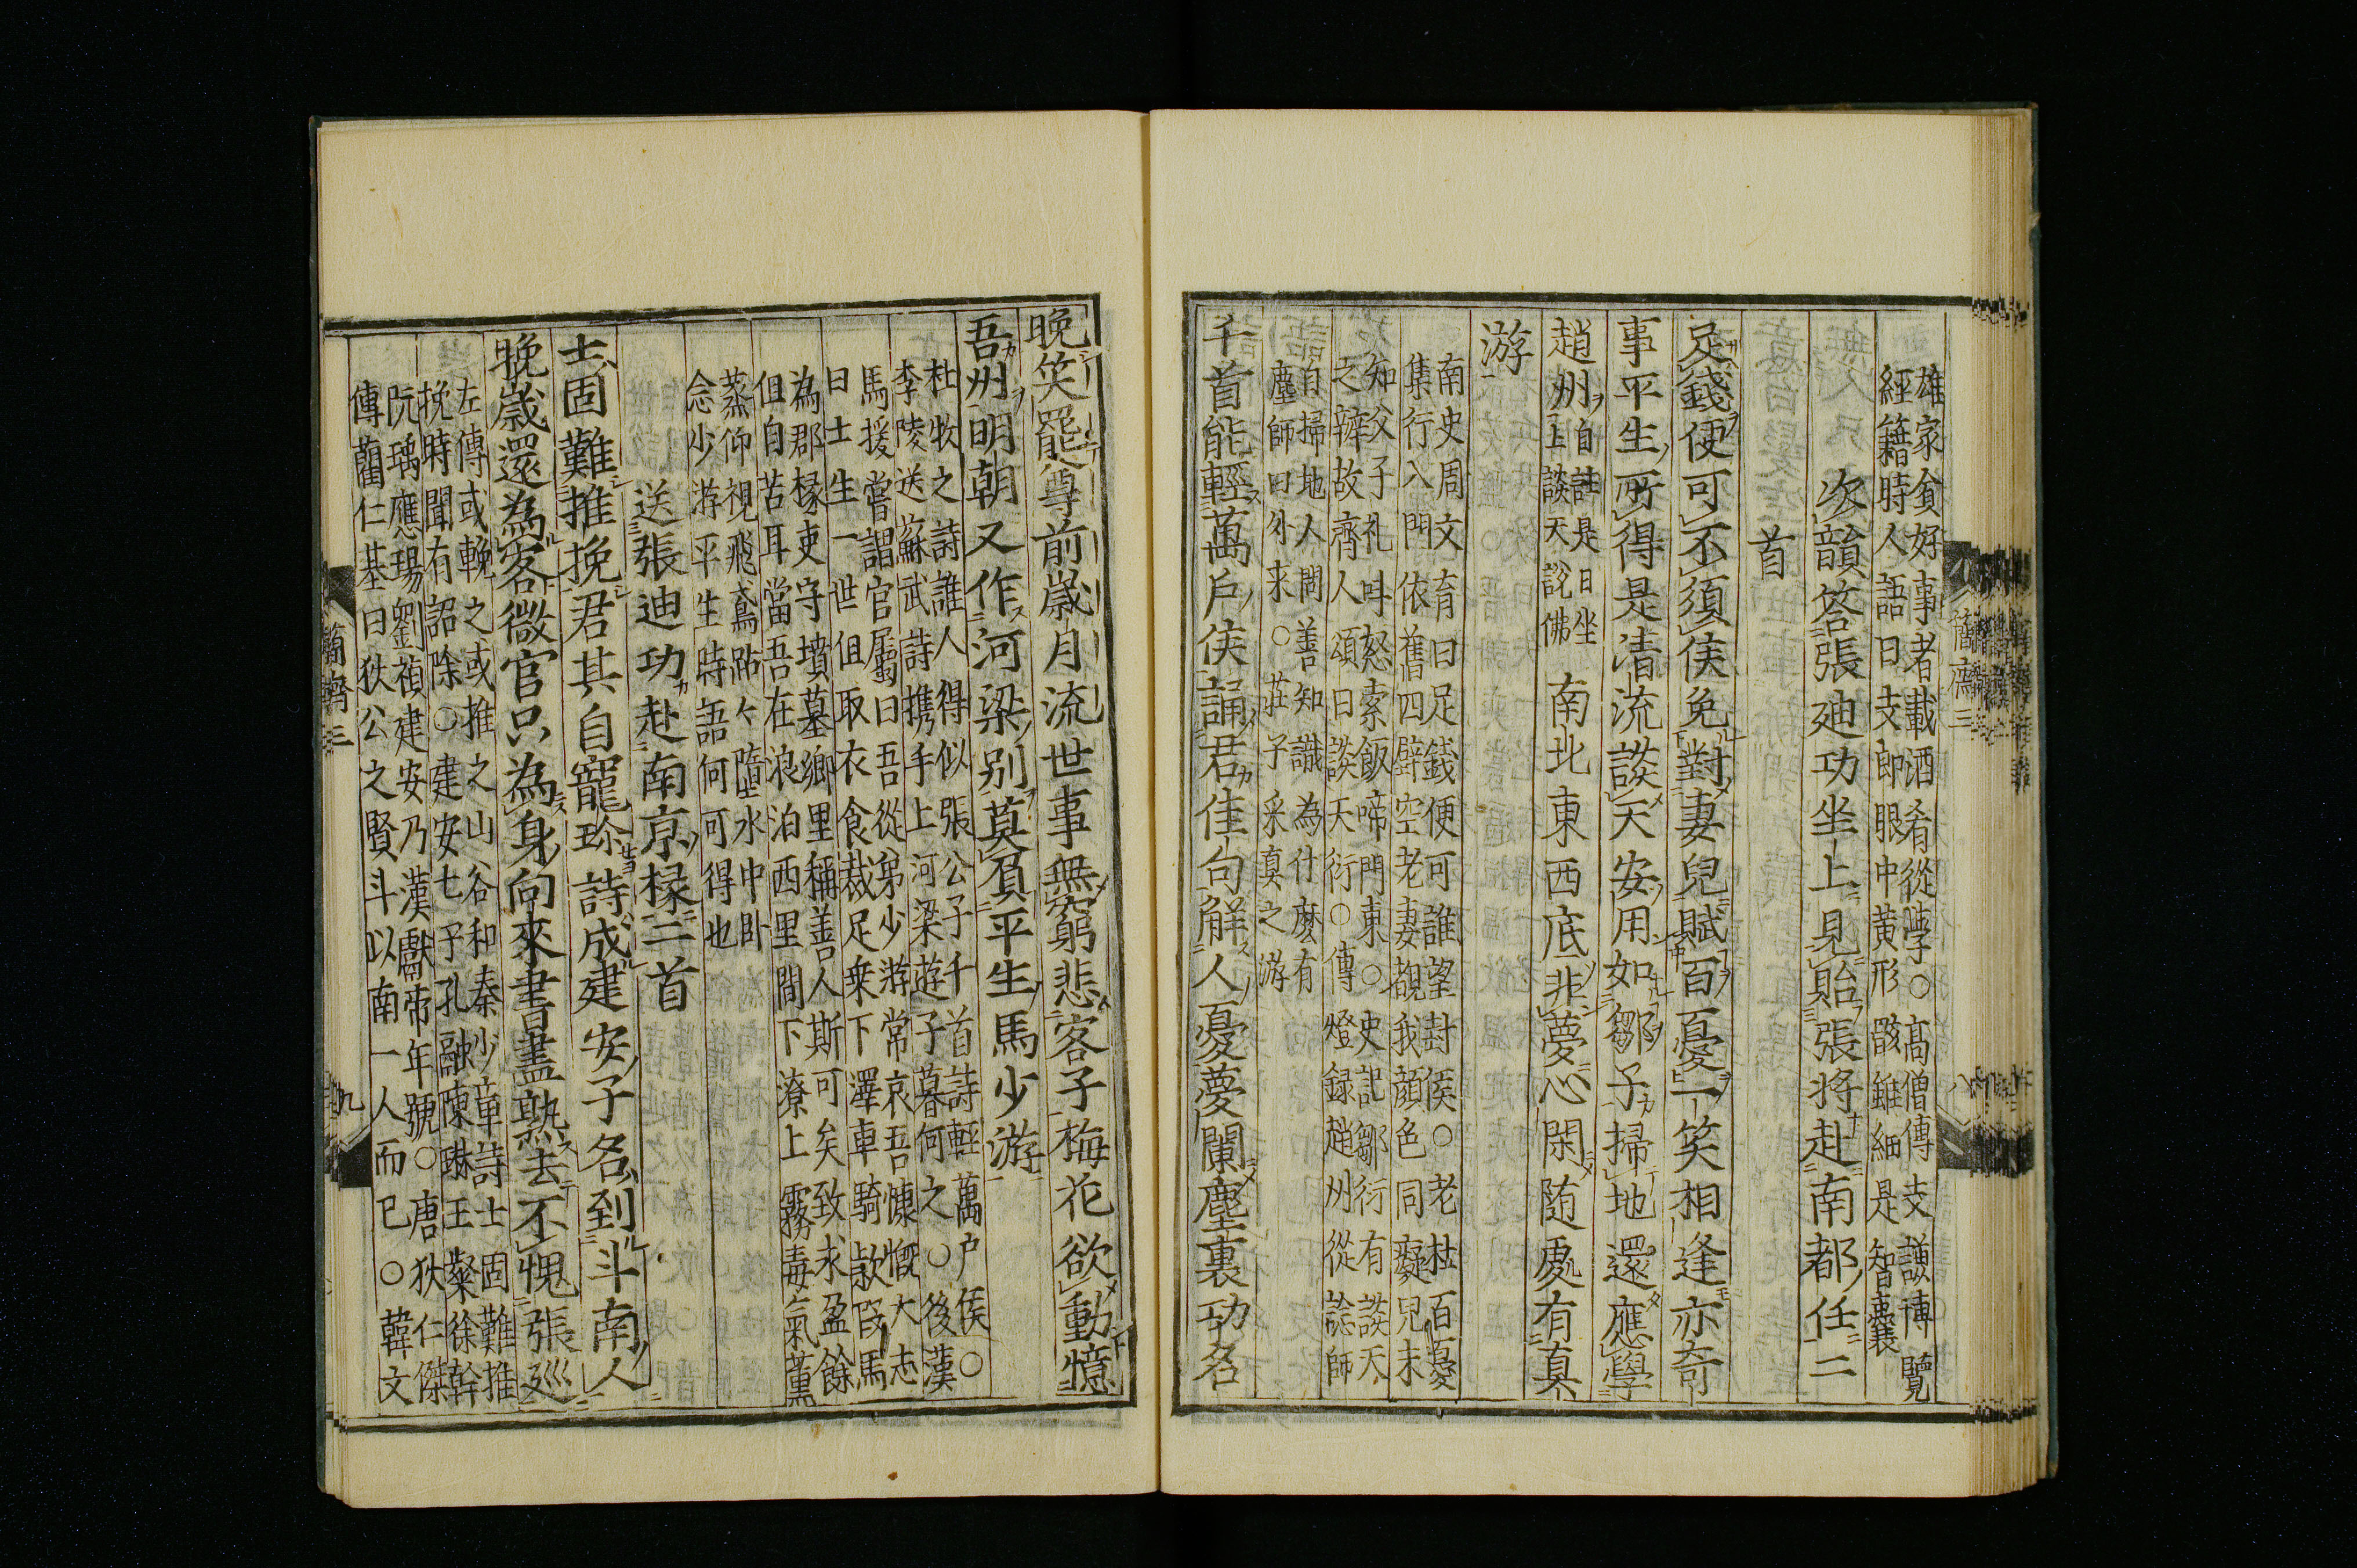 雄家貧好事者載酒肴從學○高僧傳支謙博覽
經籍時人語曰支郎眼中黄形骸雖細是智囊
次韻答張廸功坐上見貽張將赴南都任二
首
足錢便可不須侯免對妻兒賦百憂一笑相逢亦奇
事平生所得是清流談天安用如鄒子掃地還應學
趙州自註是日坐上談天説佛南北東西底非夢心閑随處有真
游
南史周文育曰足錢便可誰望封侯○老杜百憂
集行入門依舊四壁空老妻覩我顔色同癡兒未
知父子礼叫怒索飯啼門東○史記鄒衍有談天
之辯故齊人頌曰談天衍○傳燈録趙州從諗師
自掃地人問善知識為什麽有
塵師曰外来○莊子采真之游
千首能輕萬戸侯誦君佳句解人憂夢闌塵裏功名
晚笑罷尊前歲月流世事無窮悲客子梅花欲動憶
吾州明朝又作河梁别莫負平生馬少游
杜牧之詩誰人得似張公子千首詩輕萬户侯○
李陵送蘇武詩携手上河梁遊子暮何之○後漢
馬援嘗謂官屬曰吾從弟少游常哀吾慷慨大志
曰士生一世但取衣食裁足乗下澤車騎款段馬
為郡掾吏守墳墓鄉里稱善人斯可矣致求盈餘
但自苦耳當吾在浪泊西里間下潦上霧毒氣薰
蒸仰視飛鳶跕々墮水中卧
念少游平生時語何可得也
送張迪功赴南京掾二首
士固難推挽君其自寵珍詩成建安子名到斗南人
晚歲還為客微官只為身向來書盡熟去不愧張廵
左傳或輓之或推之山谷和秦少章詩士固難推
挽時聞有詔除○建安七子孔融陳琳王粲徐幹
阮瑀應瑒劉禎建安乃漢獻帝年號○唐狄仁傑
傳藺仁基曰狄公之賢斗以南一人而已○韓文
簡齋三
八
簡齋三
九